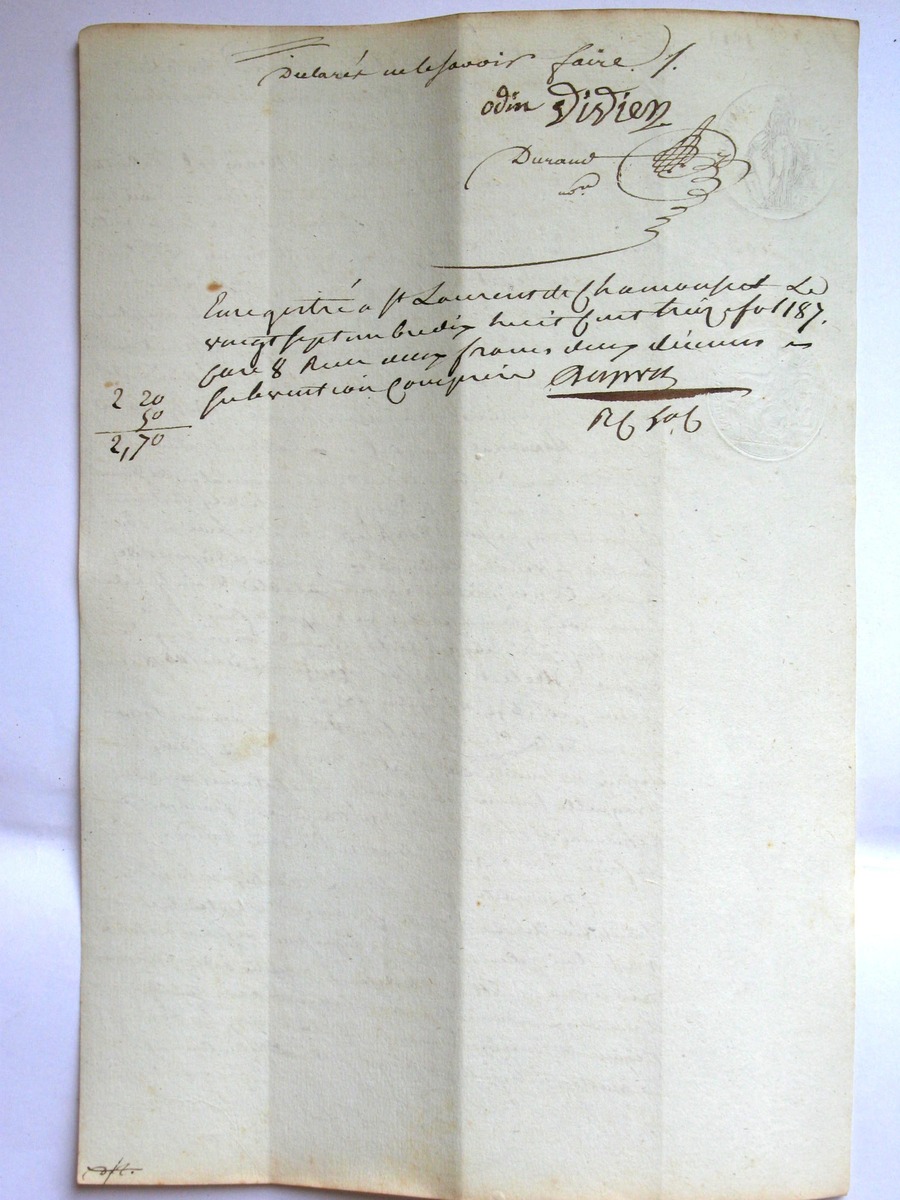 Declarés ne le savoir faire ./.
odin Didien
Durand
nore
Enregistré a st Laurent de Chamousset Le
vingt sept bre dix huit cent treize fol 187.
Case 8 Recu deux francs deux décimes
subvention comprise
2 20
50
2,70